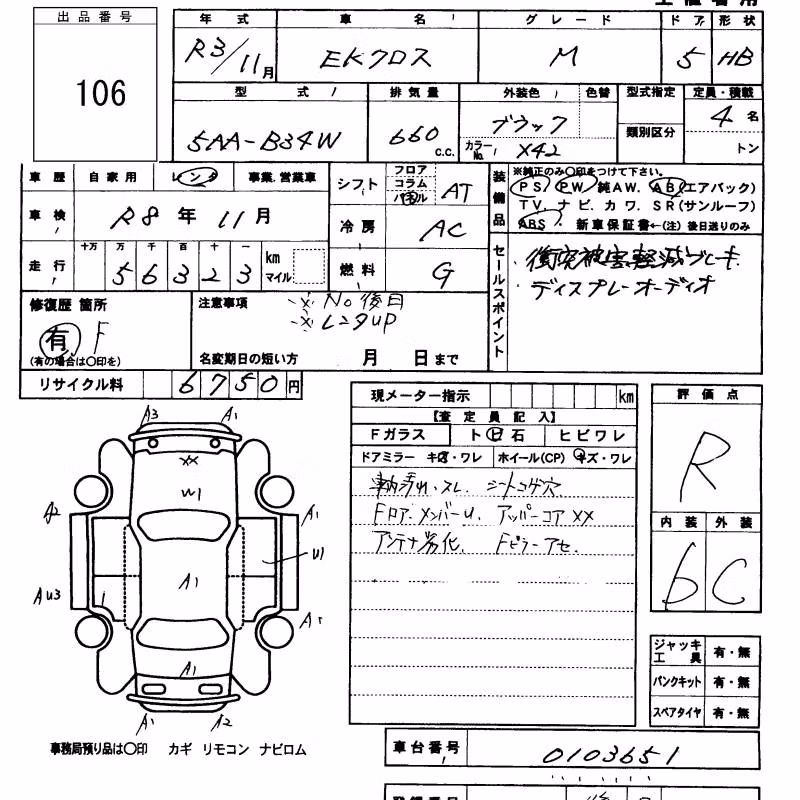 出品番号
106
年式 車名 グレード ドア 形状
R3/11月 EKクロス M 5 HB
型式 排気量 外装色 色替 型式指定 定員・積載
5AA-B34W 660 c.c. ブラック 類別区分 4名
カラーNo. X42 トン
車歴 自家用 レンタ 事業.営業車
シフト フロア コラム AT
車検 R8年 11月
冷房 AC
走行 十万 万 千 百 十 一
5 6 3 2 3 km マイル
燃料 G
装備品
※純正のみ〇印をつけて下さい。
PS PW 純AW. AB(エアバック)
TV. ナビ カワ. SR(サンルーフ)
ABS. 新車保証書←(注) 後日送りのみ
セールスポイント
・衝突被害軽減ブレーキ
・ディスプレーオーディオ
修復歴 箇所
有 F
(有の場合は〇印を)
注意事項
※ No後日
※ レンタup
名変期日の短い方 月 日まで
リサイクル料 6750円
現メーター指示 km
【査定員記入】
Fガラス ト ヒ 石 ヒビワレ
ドアミラー キズ・ワレ ホイール(CP) キズ・ワレ
車内汚れ、スレ、シートコゲ穴
Fロア.メンバーU、アッパーコアXX
アンテナ劣化、Fピラーアセ、
評価点
R
内装 外装
6 C
ジャッキ 工具 有・無
パンクキット 有・無
スペアタイヤ 有・無
A3 A1
XX
W1
A2 A1
U1
A1
AU3
A1
A1 A2
事務局預り品は〇印 カギ リモコン ナビロム
車台番号 0103651